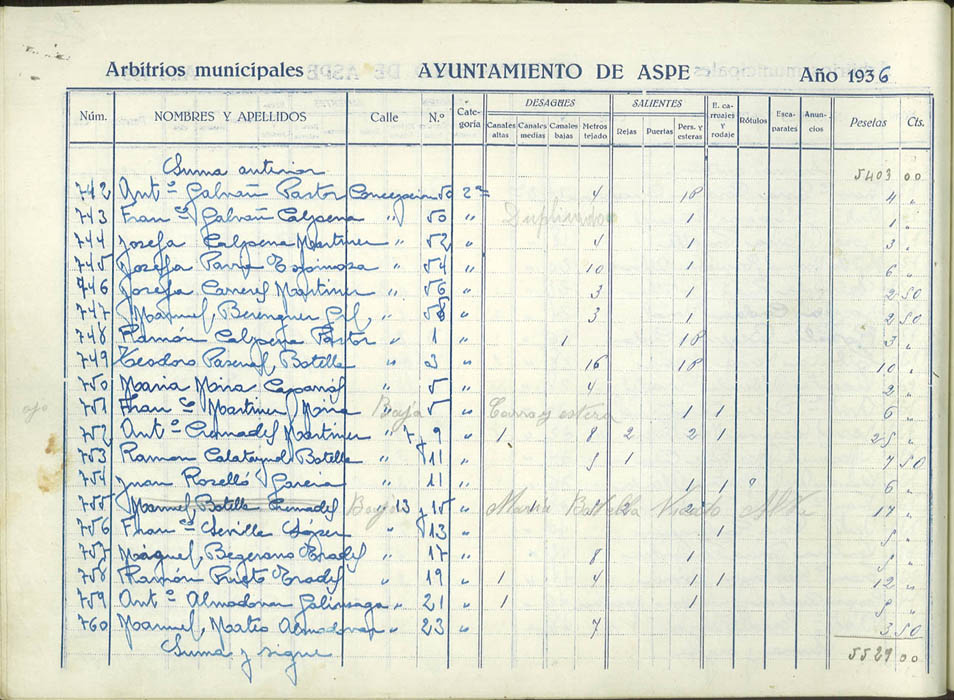 Arbitrios municipales AYUNTAMIENTO DE ASPE Año 1936
Núm. NOMBRES Y APELLIDOS Calle N.º Categoría DESAGUES Canales altas Canales medias Canales bajas Metros tejado SALIENTES Rejas Puertas Pers. y esteras El. carruajes y rodaje Rótulos Escaparates Anuncios Pesetas Cts.
Suma anterior 5403 00
742 Antº Galvañ Pastor Concepción 50 2ª 4 1P 4 "
743 Franco Galvañ Calpena " 50 " Duplicado 1 1 "
744 Josefa Calpena Martinez " 52 " 4 1 3 "
745 Josefa Parra Espinoza " 54 " 10 1 6 "
746 Josefa Carreres Martinez " 56 " 3 1 2 50
747 Manuel Berenguer Gil " 58 " 3 1 2 50
748 Ramón Calpena Pastor " 1 " 1 1P 3 "
749 Teodoro Pascual Botella " 3 " 16 1P 10 "
750 Maria Mira Caparrós " 5 " 4 2 "
ojo 751 Franco Martinez Mira Baja " 5 " Carro y estera 1 1 6 "
752 Antº Cremades Martinez " 7 y 9 " 1 8 2 2 1 25 "
753 Ramon Calatayud Botella " 11 " 5 1 7 50
754 Juan Roselló Garcia " 11 " 1 1 6 "
755 Manuel Botella Cremades Baja " 13 y 15 " Maria Botella 17 "
756 Franco Sevilla López " 13 " 1 5 "
757 Miguel Begerano Prades " 17 " 8 1 5 "
758 Ramón Prieto Prades " 19 " 1 4 1 1 12 "
759 Antº Almodovar Galinsoga " 21 " 1 1 5 "
760 Manuel Mateo Almodovar " 23 " 7 3 50
Suma y sigue 5529 00